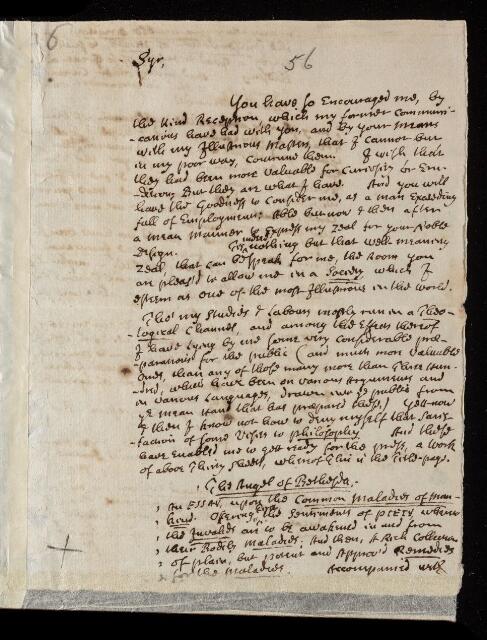 6
56
Syr,
You have so Encouraged me, by
the kind Reception, which my former Communi-
-cations have had with you, and by your means
with my Illustrious Masters, that I cannot but
in my poor way, continue them. I wish that
they had been more valuable for Curiositie or Eru-
dition; But they are what I have. And you will
have the Goodness to Consider me, as a man exceeding
full of Employment; Able but now & then after
a mean manner to Express my Zeal for your Noble
Design. Tis indeed nothing but that well-meaning
Zeal, that can bespeak for me, the Room you
are pleas'd to allow me in a Society which I
esteem as one of the most Illustrious in the world.
Tho' my Studies & Labours mostly run in a Theo-
-logical Channel, and among the Effects thereof
I have lying by me some very considerable pre-
parations for the publick (and much more valuable
ones, than any of those many more than Three Hun-
-dred, which have been on various Arguments and
in various Languages, drawn into publick from
ye mean Hand that has prepared these,) yett now
& then I know not how to deny myself that Satis-
faction of some Visits to Philosophy. And these
have Enabled me to gett ready for the press, a Work
of above Thirty sheets, whereof this is the Title-page.
The Angel of Bethesda,
An ESSAY, upon the Common Maladies of Man-
kind: Offering, first, the Sentiments of PIETY, whereto
the Invalids are to be awakened in and from
their Bodily Maladies; And then, A Rich Collection
of plain, but potent and Approv'd Remedies
for the Maladies. Accompanied with